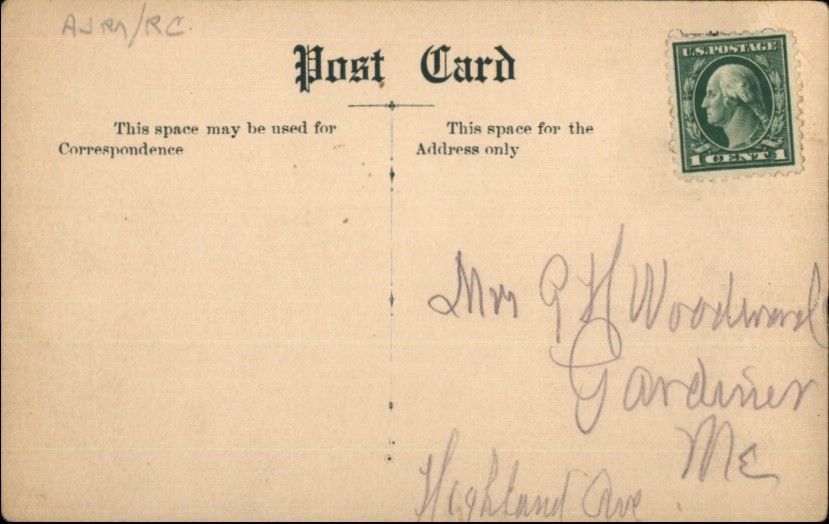 AJM/RC.
Post Card
This space may be used for
Correspondence
This space for the
Address only
U.S. POSTAGE
1 CENT 1
Mrs G H Woodward
Gardiner
Me
Highland Ave